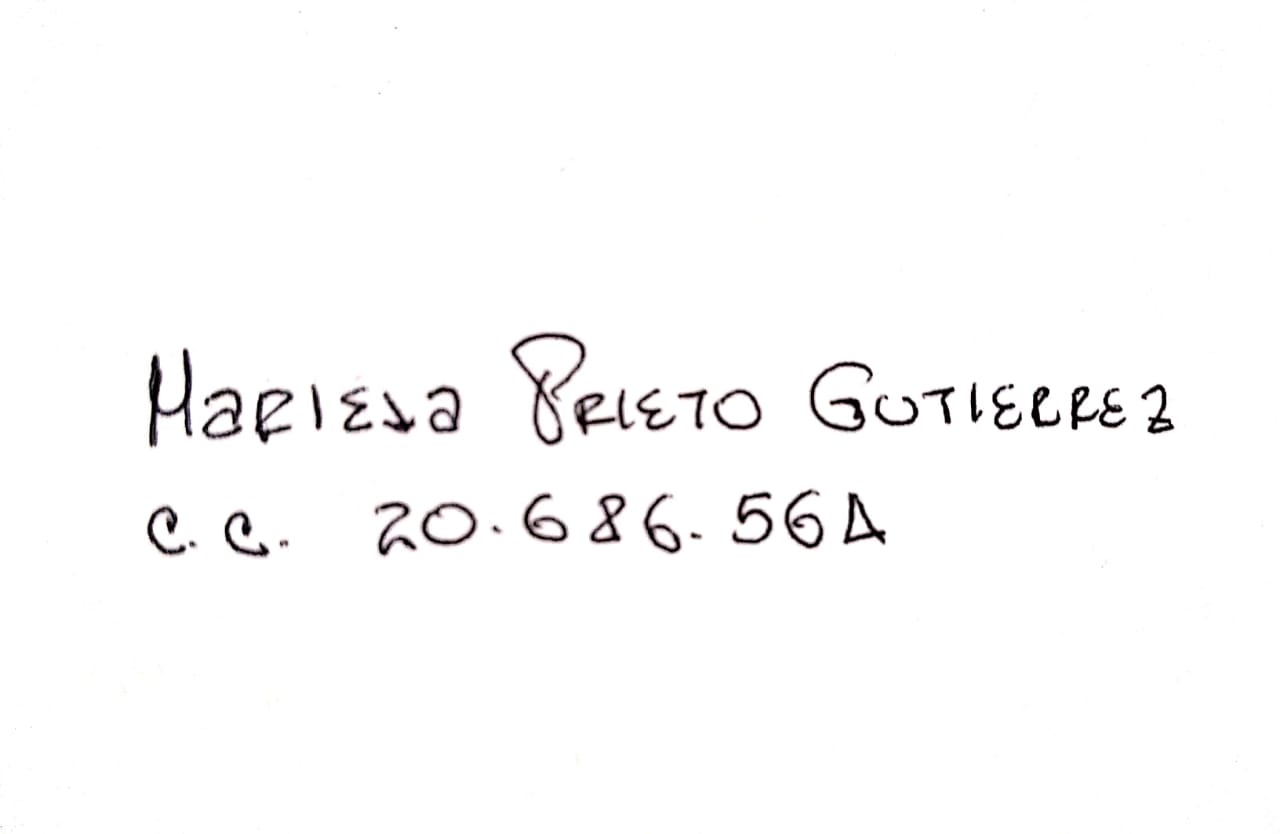 Mariela Prieto Gutierrez
C.C. 20.686.564